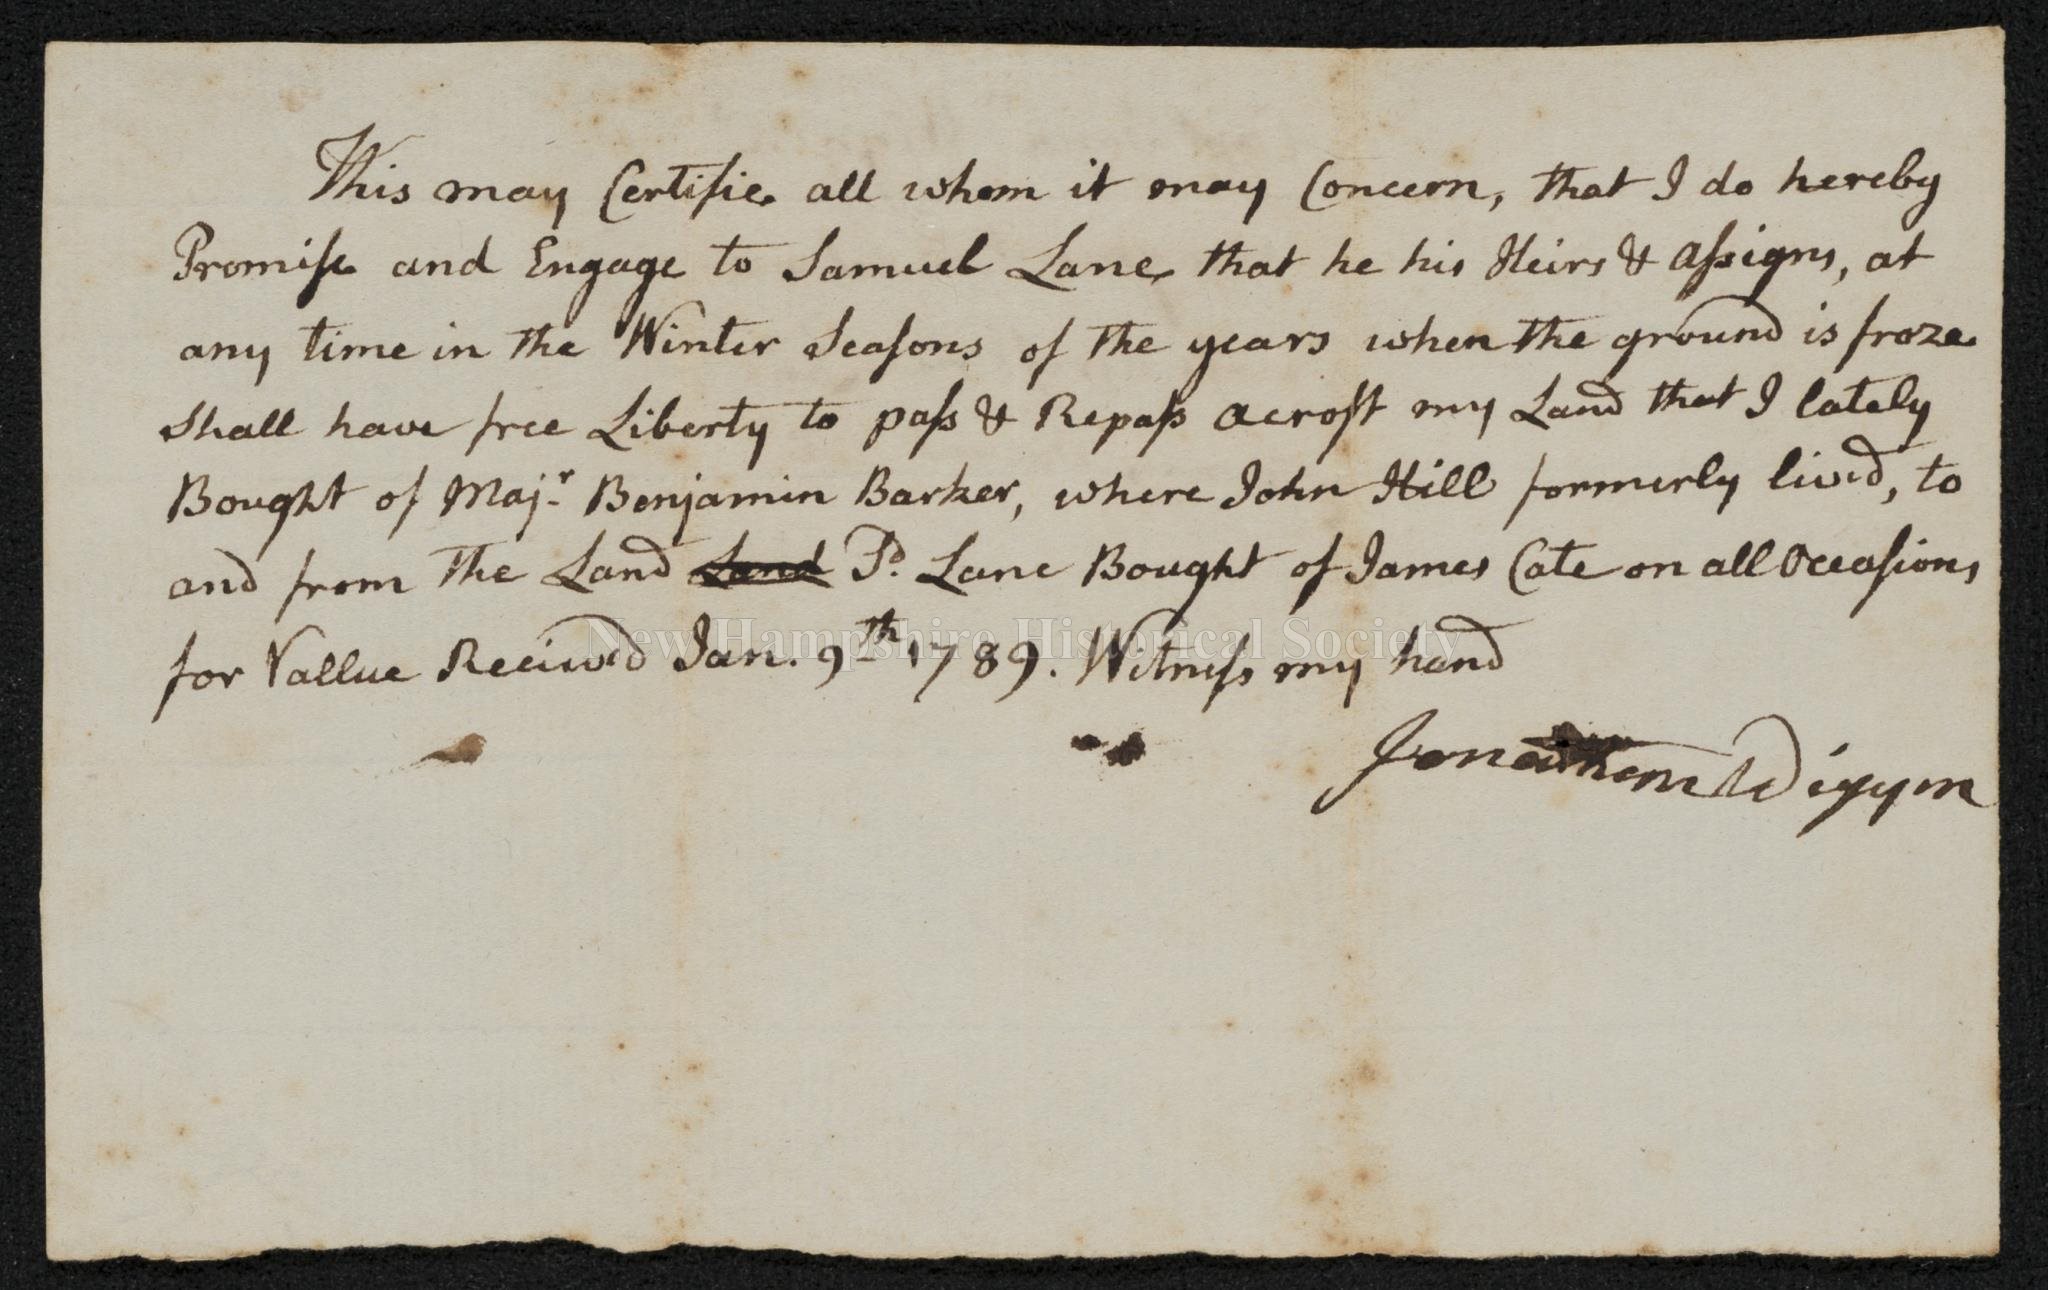 This may Certifie all whom it may Concern, that I do hereby
Promiſe and Engage to Samuel Lane that he his Heirs & aſsigns, at
any time in the Winter Seaſons of the years when the ground is froze
Shall have free Liberty to paſs & Repaſs acroſt my Land that I lately
Bought of Majr. Benjamin Barker, where John Hill formerly lived, to
and from the Land Land Sd. Lane Bought of James Cate on all Occaſions
for Vallue Reciev'd Jan. 9th 1789. Witneſs my hand
New Hampshire Historical Society
Jonathan Wiggin